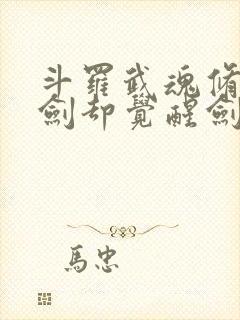 斗羅武魂脩
劍却覺醒劍
馬忠